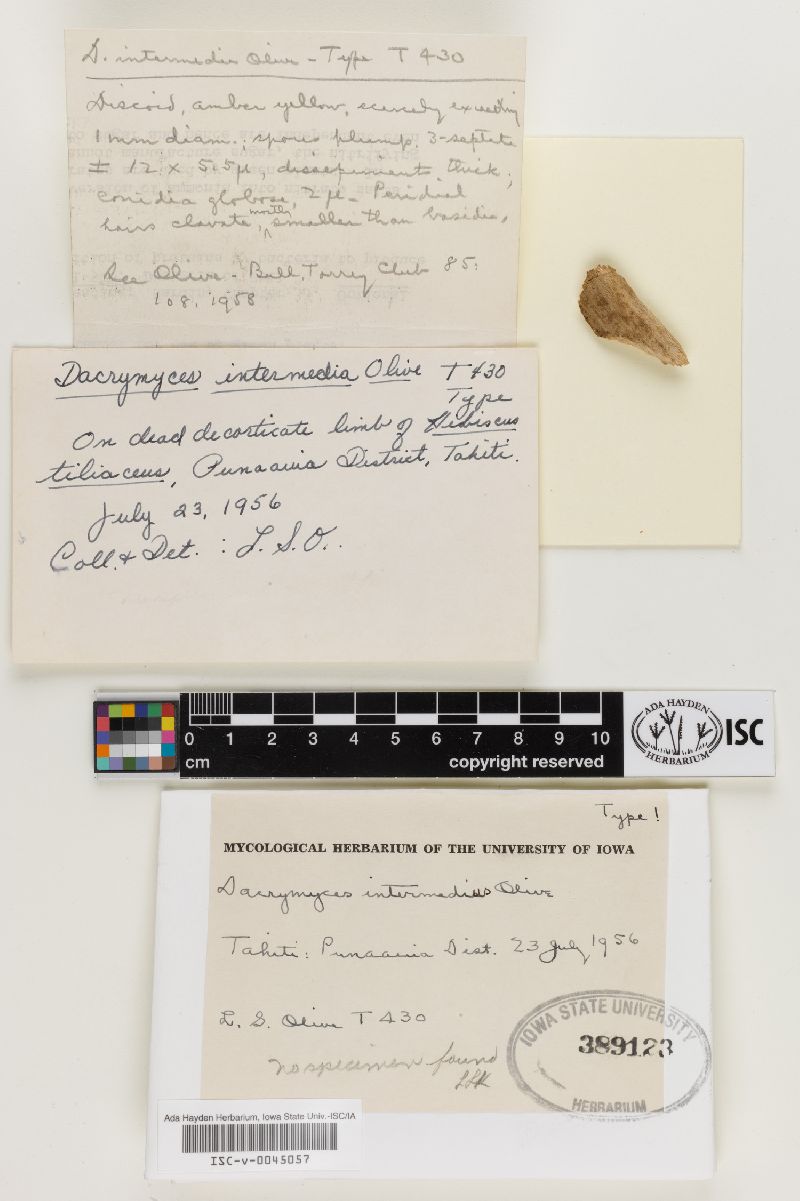 D. intermedia Olive - Type T 430
Discoid, amber yellow, scarcely exceeding
1 mm diam.; spores plump, 3-septate
± 12 x 5.5µ, dissepiments thick;
conidia globose, 2 µ - Peridial
hairs clavate, mostly smaller than basidia.
See Olive - Bull. Torrey Club 85:
108, 1958
Dacrymyces intermedia Olive T 430
Type
On dead decorticate limb of Hibiscus
tiliaceus, Punaauia District, Tahiti.
July 23, 1956
Coll. & Det. : L. S. O..
0 1 2 3 4 5 6 7 8 9 10
cm
copyright reserved
ADA HAYDEN
HERBARIUM
ISC
Type !
MYCOLOGICAL HERBARIUM OF THE UNIVERSITY OF IOWA
Dacrymyces intermedius Olive
Tahiti: Punaauia Dist. 23 July 1956
L. S. Olive T 430
no specimen found
IOWA STATE UNIVERSITY
389123
HERBARIUM
Ada Hayden Herbarium, Iowa State Univ.-ISC/IA
ISC-v-0045057